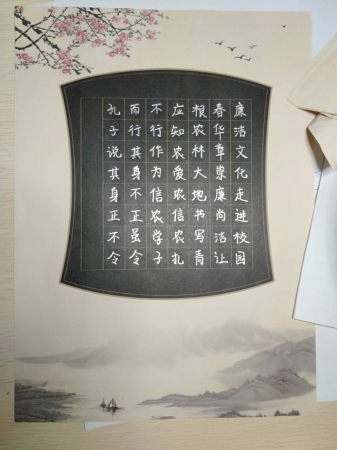 孔子说其身正不令
而行其身不正虽令
不行作为信农学子
应知农爱农信农扎
根农林大地书写青
春华章崇廉尚洁让
廉洁文化走进校园